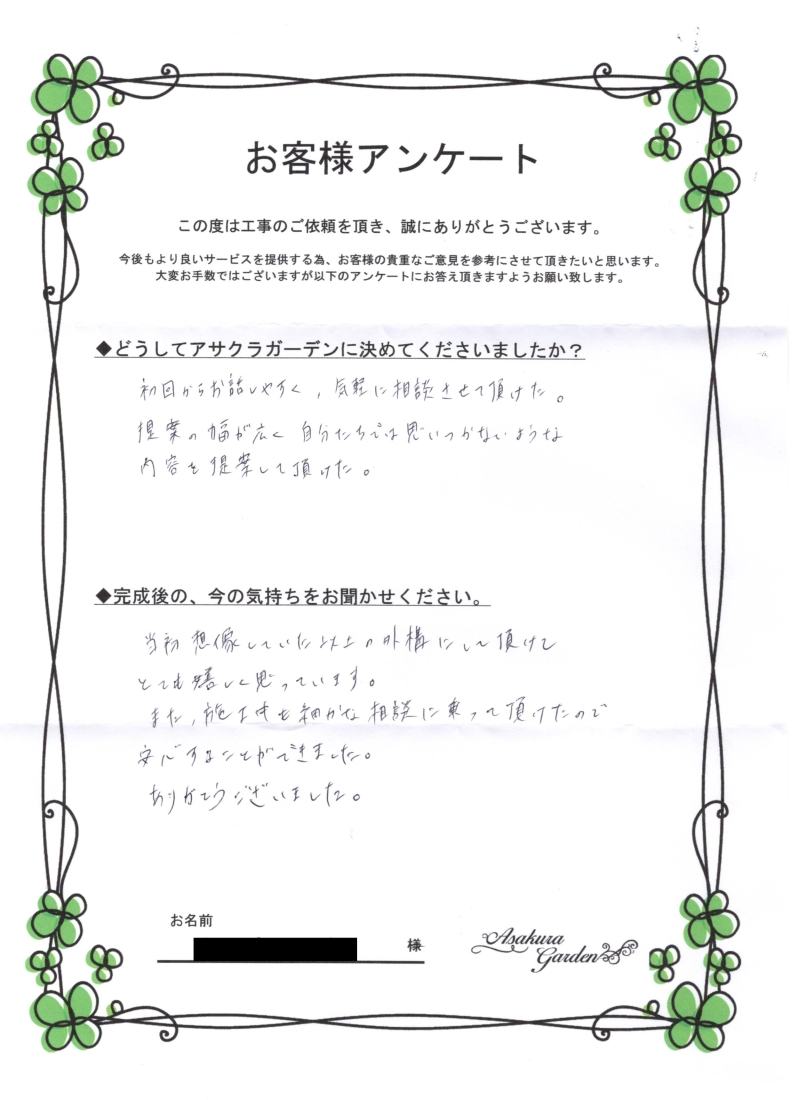 お客様アンケート
この度は工事のご依頼を頂き、誠にありがとうございます。
今後もより良いサービスを提供する為、お客様の貴重なご意見を参考にさせて頂きたいと思います。
大変お手数ではございますが以下のアンケートにお答え頂きますようお願い致します。
◆どうしてアサクラガーデンに決めてくださいましたか？
初回からお話しやすく，気軽に相談させて頂けた。
提案の幅が広く自分たちでは思いつかないような
内容を提案して頂けた。
◆完成後の、今の気持ちをお聞かせください。
当初想像していた以上の外構にして頂けて
とても嬉しく思っています。
また，施工中も細かな相談に乗って頂けたので
安心することができました。
ありがとうございました。
お名前
様
Asakura
Garden